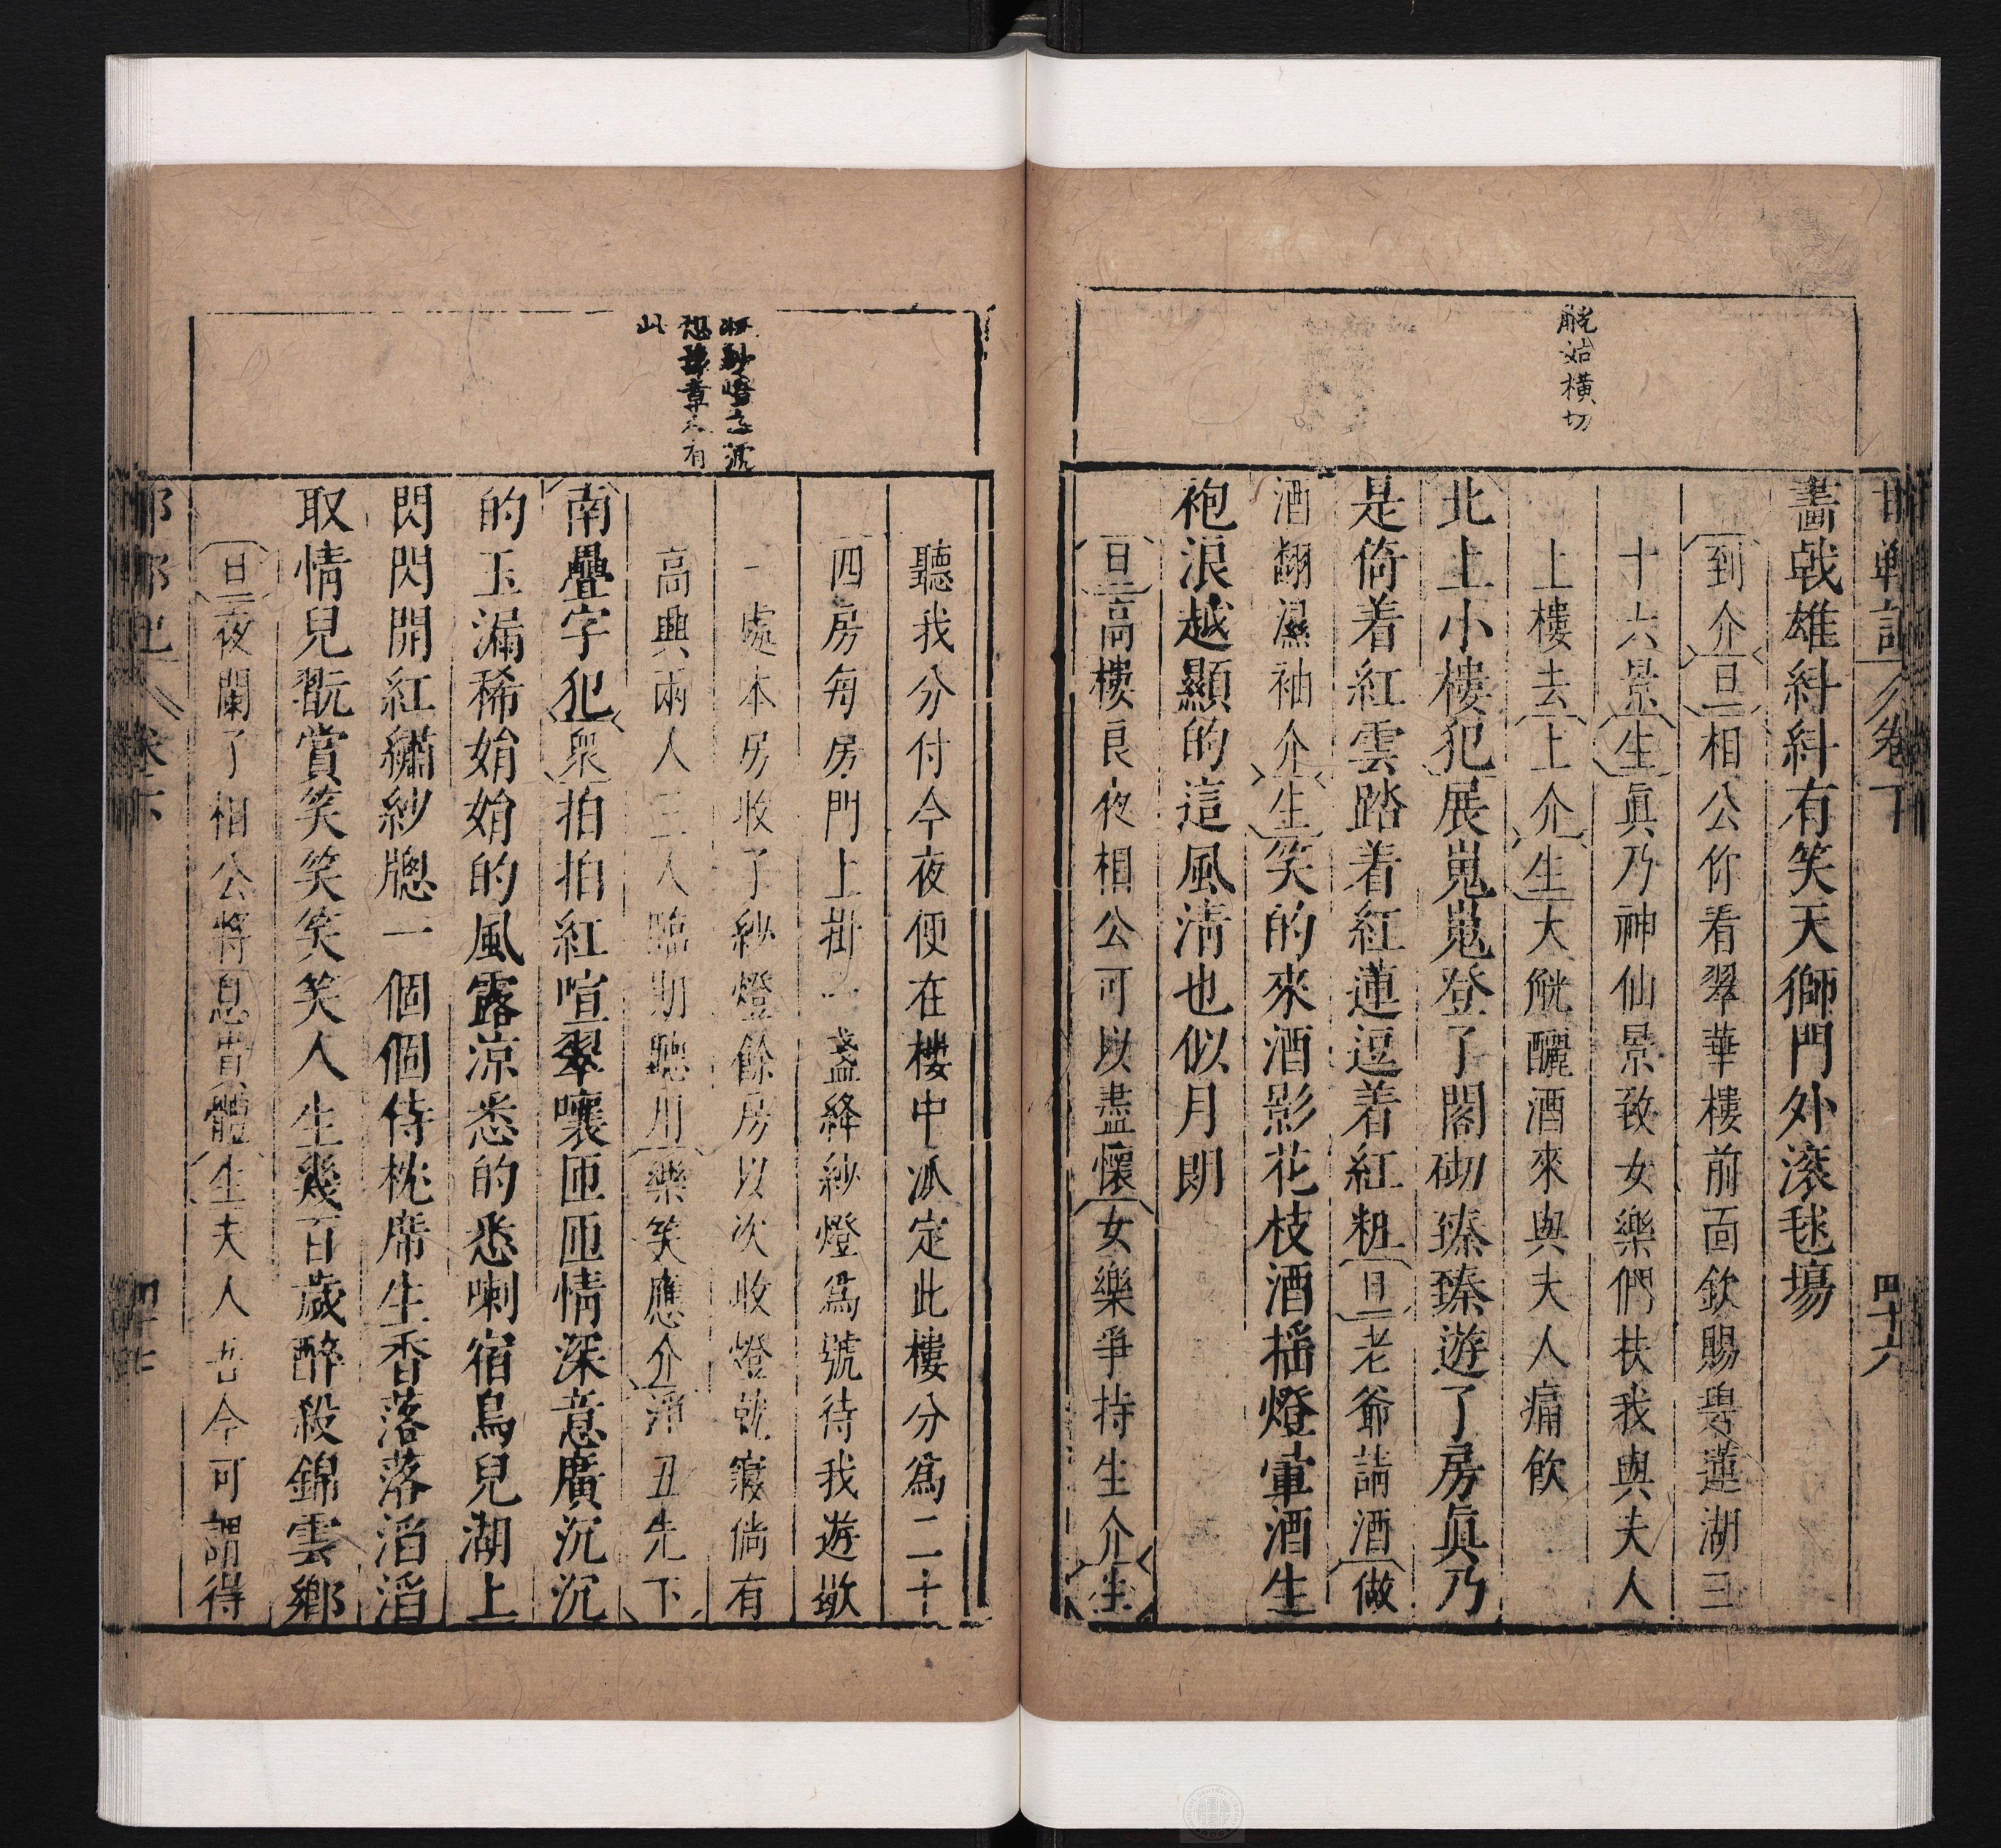 觥姑橫切
邯鄲記 卷下 四十六
畵戟雄紏紏有笑天獅門外滚毬塲
到介旦相公你看翠華樓前面欽賜㽔蓮湖三
十六景生眞乃神仙景致女樂們扶我與夫人
上樓去上介生大觥釃酒來與夫人痛飲
北上小樓犯展嵬嵬登了閣砌臻臻遊了房眞乃
是倚着紅雲踏着紅蓮逗着紅粧旦老爺請酒做
酒翻濕袖介生笑的來酒影花枝酒摇燈暈酒生
袍浪越顯的這風淸也似月朗
旦高樓良夜相公可以盡懷女樂爭持生介生
有
此
聽我分付今夜便在樓中派定此樓分爲二十
四房每房門上掛一盞絳紗燈爲號待我遊歇
一處本房收了紗燈餘房以次收燈就寢倘有
高興兩人三人臨期聽用樂笑應介淨丑先下
南疊字犯衆拍拍紅喧翠嚷匝匝情深意廣沉沉
的玉漏稀娟娟的風露涼悉的悉喇宿鳥兒湖上
閃閃開紅繡紗牕一個個侍枕席生香落落滔滔
取情兒翫賞笑笑笑笑人生幾百歲醉殺錦雲鄉
旦夜闌了相公將息貴體生夫人吾今可謂得
卷下 四十七